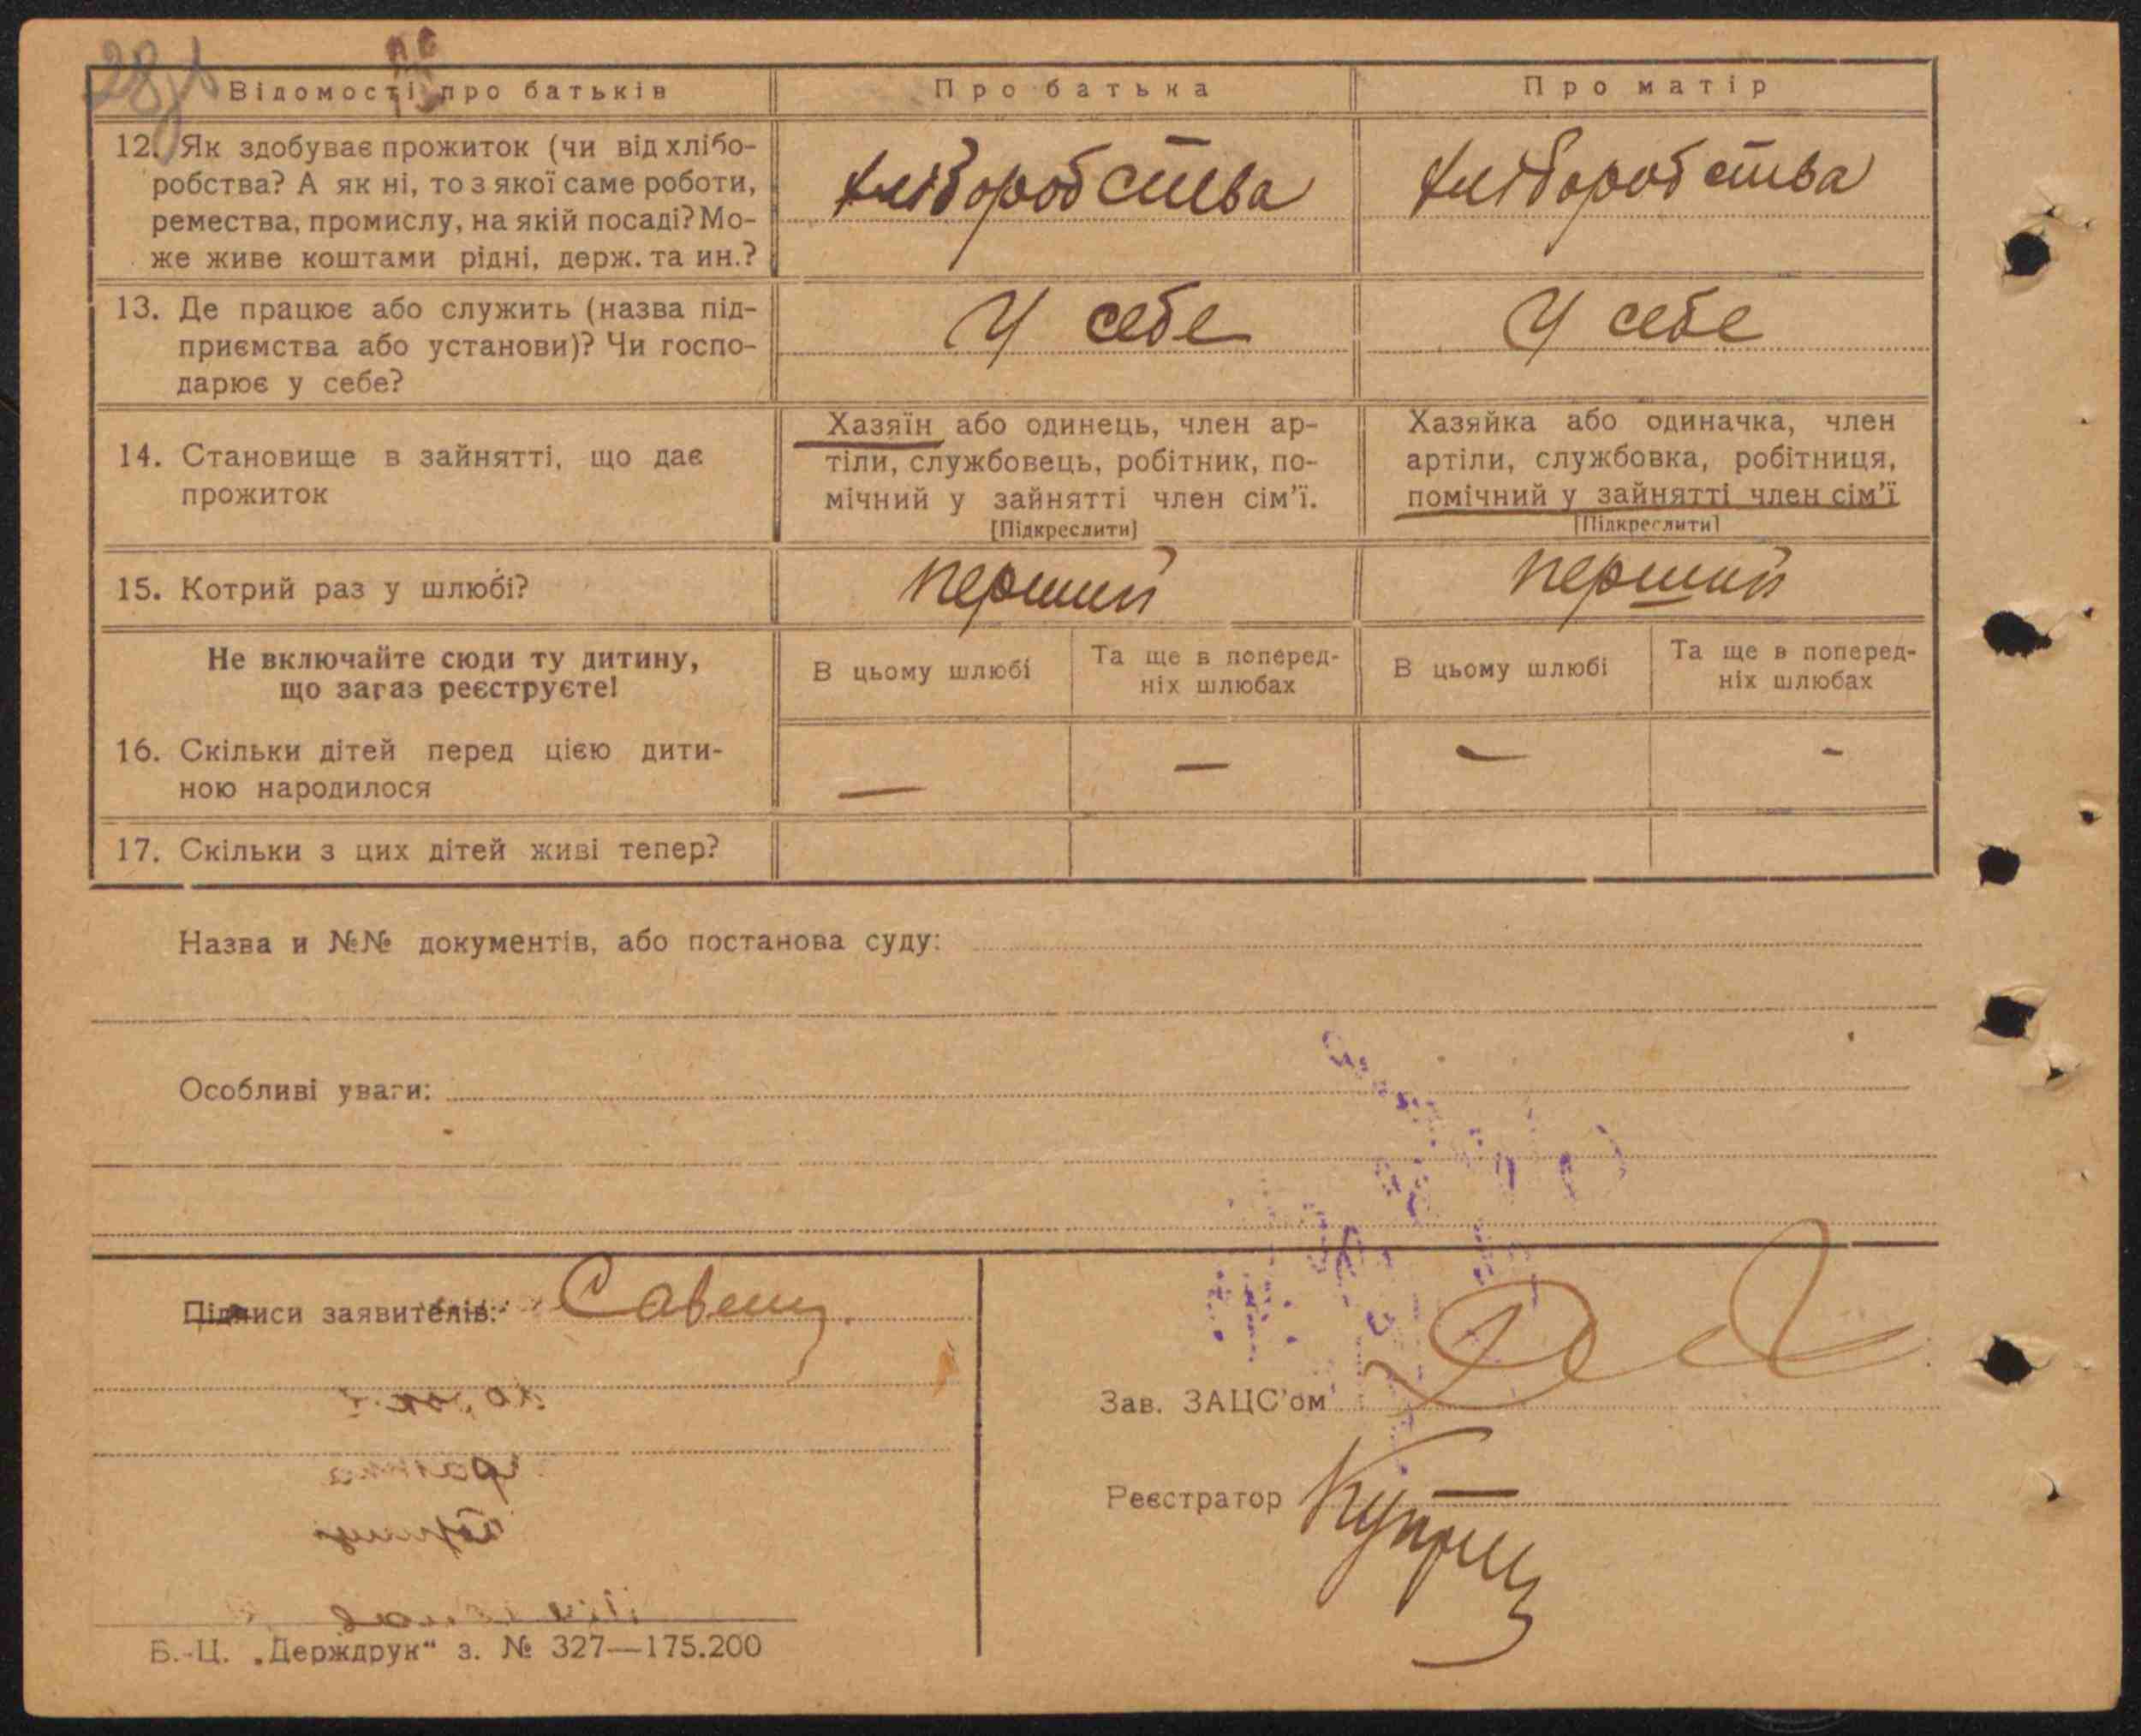 Відомості про батьків Про батька Про матір
12. Як здобуває прожиток (чи від хлібо-
робства? А як ні, то з якої саме роботи,
ремества, промислу, на якій посаді? Мо-
же живе коштами рідні, держ. та ин.?
хліборобства хліборобства
13. Де працює або служить (назва під-
приємства або установи)? Чи госпо-
дарює у себе?
У себе У себе
14. Становище в зайнятті, що дає
прожиток
Хазяїн або одинець, член ар-
тіли, службовець, робітник, по-
мічний у зайнятті член сім'ї.
[Підкреслити]
Хазяйка або одиначка, член
артіли, службовка, робітниця,
помічний у зайнятті член сім'ї
[Підкреслити]
15. Котрий раз у шлюбі? первий первий
Не включайте сюди ту дитину,
що зараз реєструєте!
В цьому шлюбі
Та ще в поперед-
ніх шлюбах
В цьому шлюбі
Та ще в поперед-
ніх шлюбах
16. Скільки дітей перед цією дити-
ною народилося
— — — -
17. Скільки з цих дітей живі тепер?
Назва и №№ документів, або постанова суду:
Особливі уваги:
Підписи заявителів:
Зав. ЗАЦС'ом
Реєстратор
Б.-Ц. „Держдрук“ з. № 327—175.200